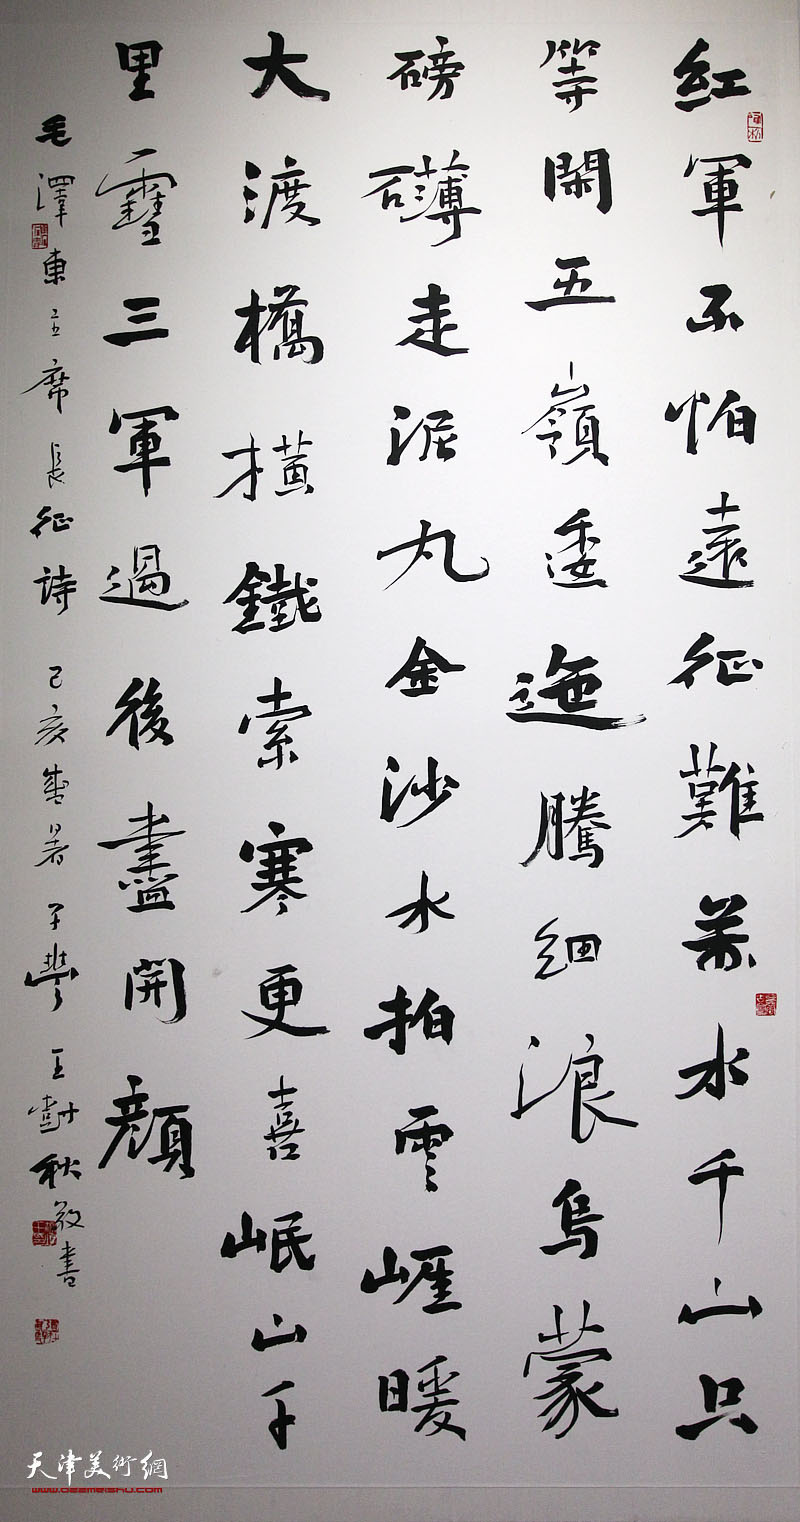 紅軍不怕遠征難萬水千山只
等閑五嶺逶迤騰細浪烏蒙
磅礴走泥丸金沙水拍雲崕暖
大渡橋橫鐵索寒更喜岷山千
里雪三軍過後盡開顏
毛澤東主席長征詩 己亥盛暑 於 王樹秋敬書
天津美術網